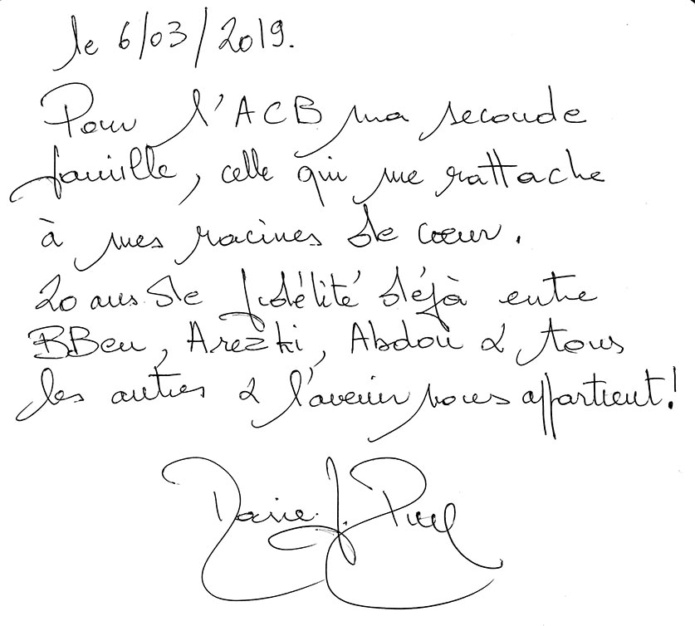 le 6/03/2019.
Pour l'ACB ma seconde
famille, celle qui me rattache
à mes racines de cœur.
20 ans de fidélité déjà entre
BBen, Arezki, Abdou & tous
les autres & l'avenir nous appartient!
J.